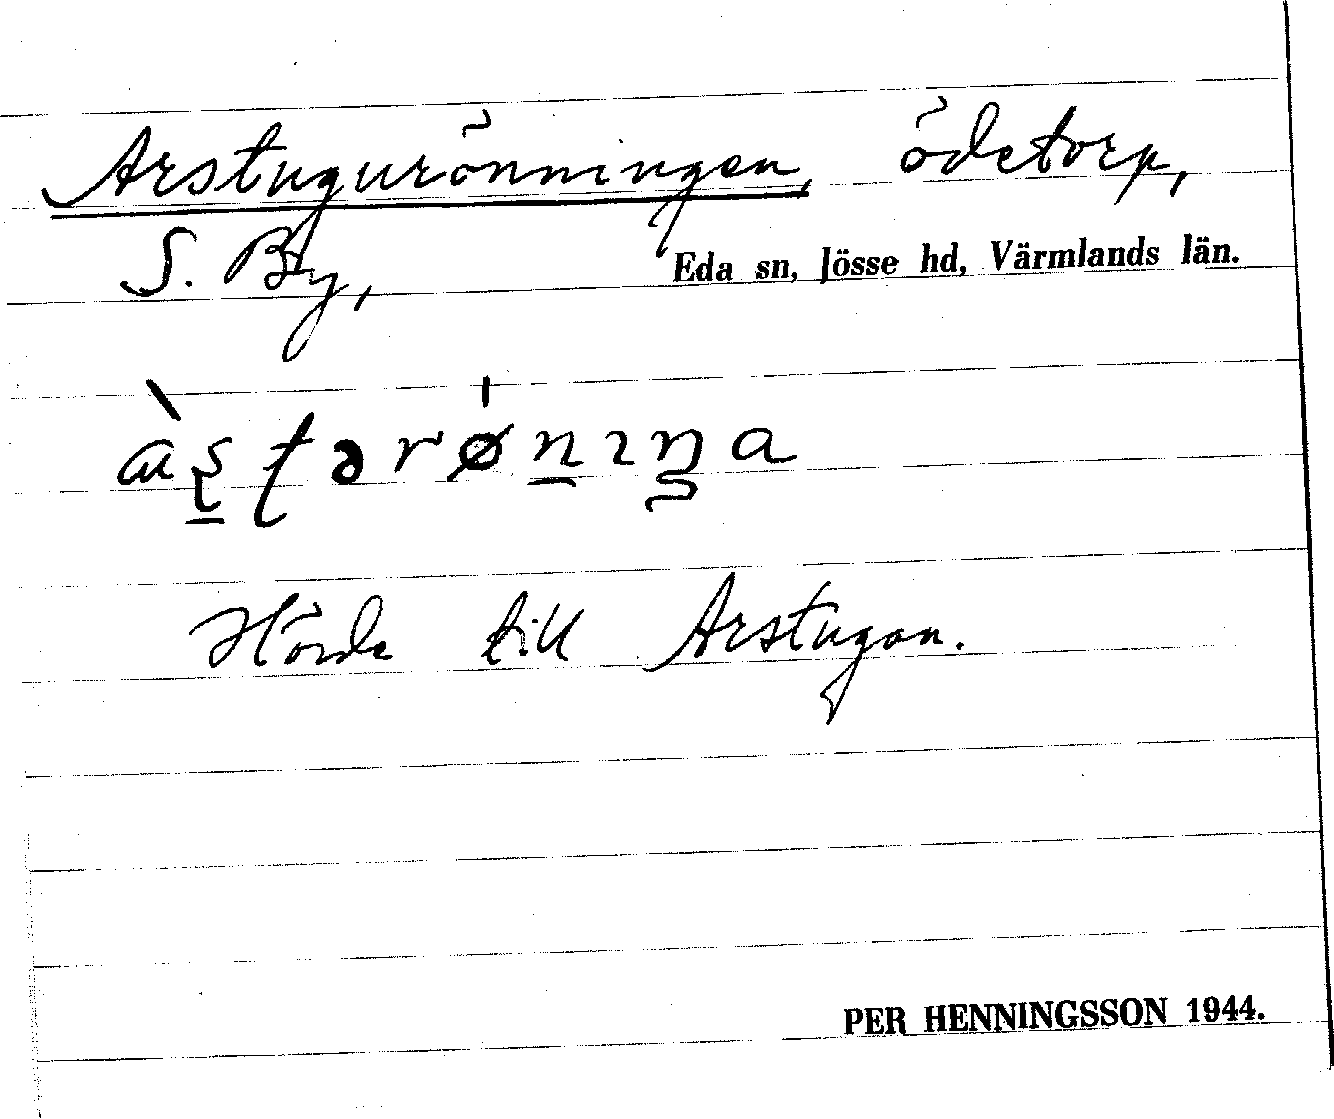 Arstugurönningen, ödetorp,
S. By, Eda sn, Jösse hd, Värmlands län.
Hörde till Arstugan.
PER HENNINGSSON 1944.